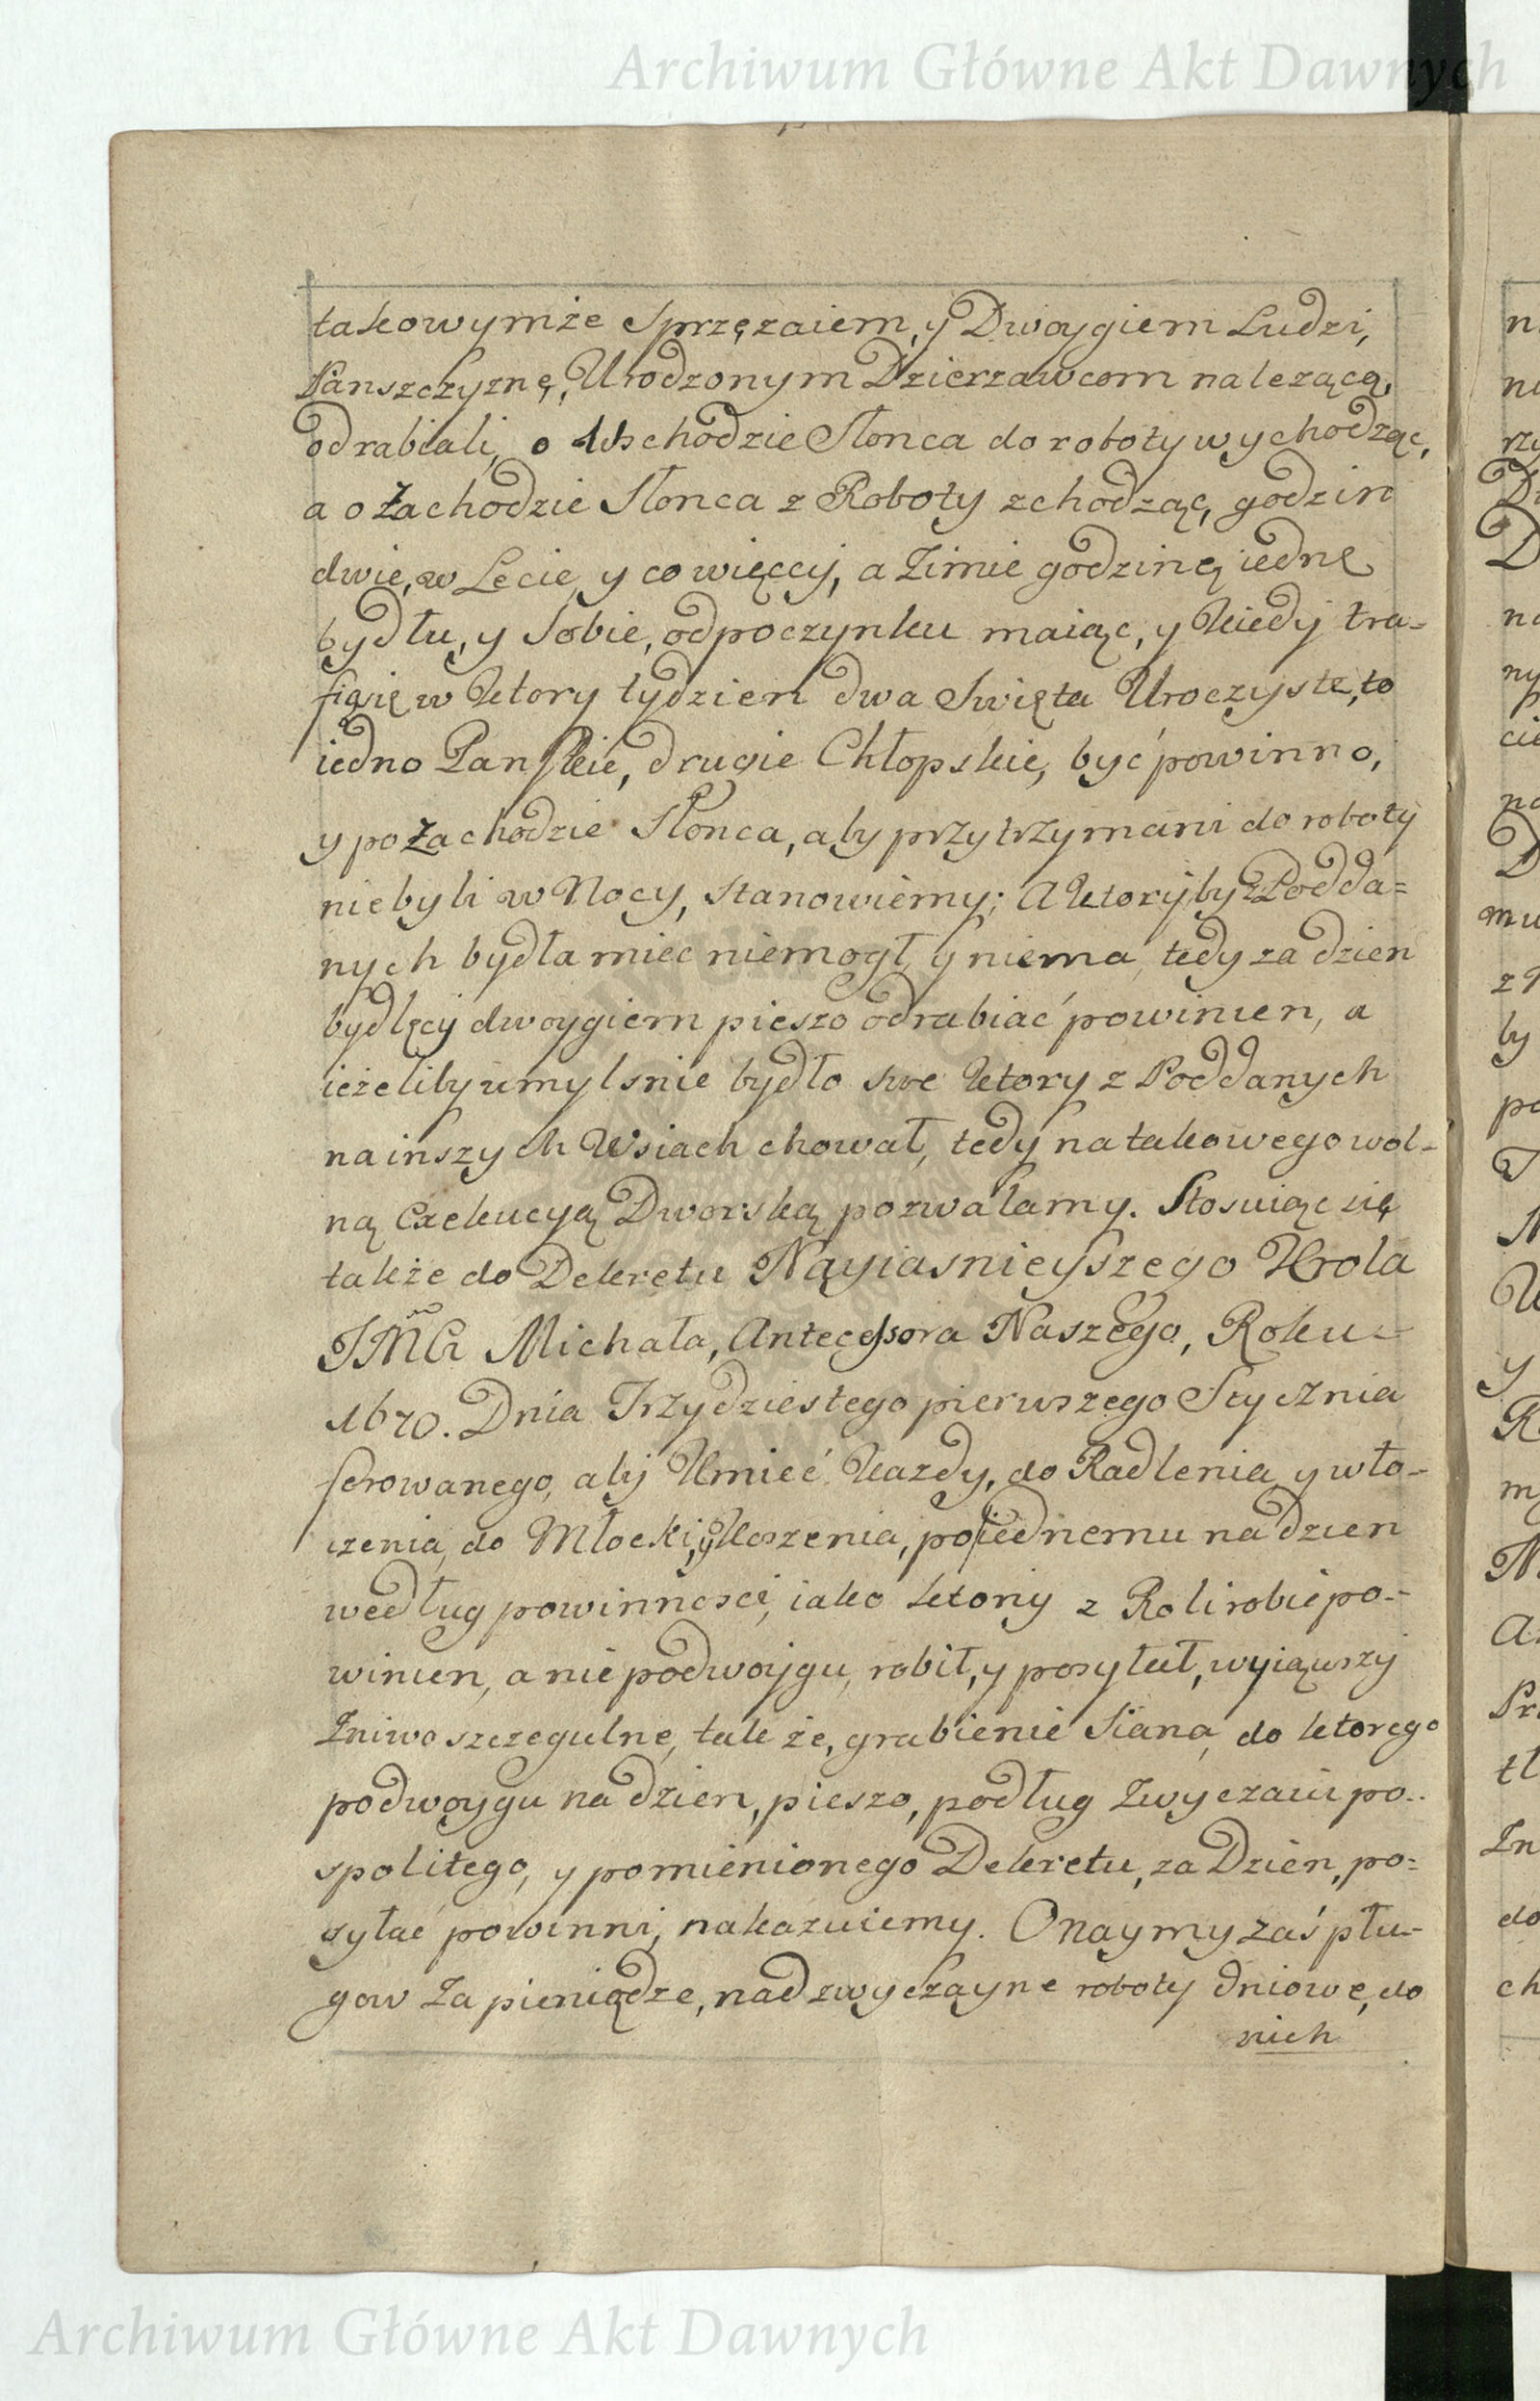 Archiwum Główne Akt Dawnych
takowymże Sprzęzaiem, y Dwoygiem Ludzi,
Panszczyznę, Urodzonym Dzierzawcom nalezącą,
odrabiali, o Wschodzie Słonca do roboty wychodząc,
a o Zachodzie Słonca z Roboty zchodząc, godzin
dwie, w Lecie, y co więccy, a Zimie godzinę iednę
bydłu, y Sobie, odpoczynku maiąc, y kiedy tra=
fią się w ktory tydzien dwa Swięta Uroczyste, to
iedno Panskie, drugie Chłopskie, być powinno,
y po Zachodzie Słonca, aby przytrzymani do roboty
niebyli w Nocy, stanowiemy; A ktoryby z Podda=
nych bydła miec niemogł, y niema, tedy za dzien
bydlęcy dwoygiem pieszo odrabiać powinien, a
ieżeliby umyslnie bydło swe ktory z Poddanych
na inszych Wsiach chował, tedy na takowego wol-
ną Exekucyą Dworską pozwalamy. Stosuiąc się
także do Dekretu Nayiasnieyszego Krola
JMCi Michała, Antecessora Naszego, Roku
1670. Dnia Trzydziestego pierwszego Stycznia
ferowanego, aby Kmieć kazdy, do Radlenia y wło-
czenia, do Młocki, y Koszenia, po iednemu na dzien
według powinnosci, iako ktory z Roli robic po-
winien, a nie podwoygu, robił, y posyłał, wyiąwszy
Żniwo szczegulne, także, grabienie Siana, do ktorego
podwoygu na dzien, pieszo, podług Zwyczaiu po-
spolitego, y pomienionego Dekretu, za Dzien, po=
syłać powinni, nakazuiemy. O Naymy zaś płu-
gow Za pieniądze, nad zwyczayne roboty dniowe, do
nich
Archiwum Główne Akt Dawnych